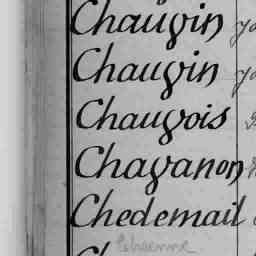 Chauvin
Chauvin
Chauvois
Chavanon
Chedemail